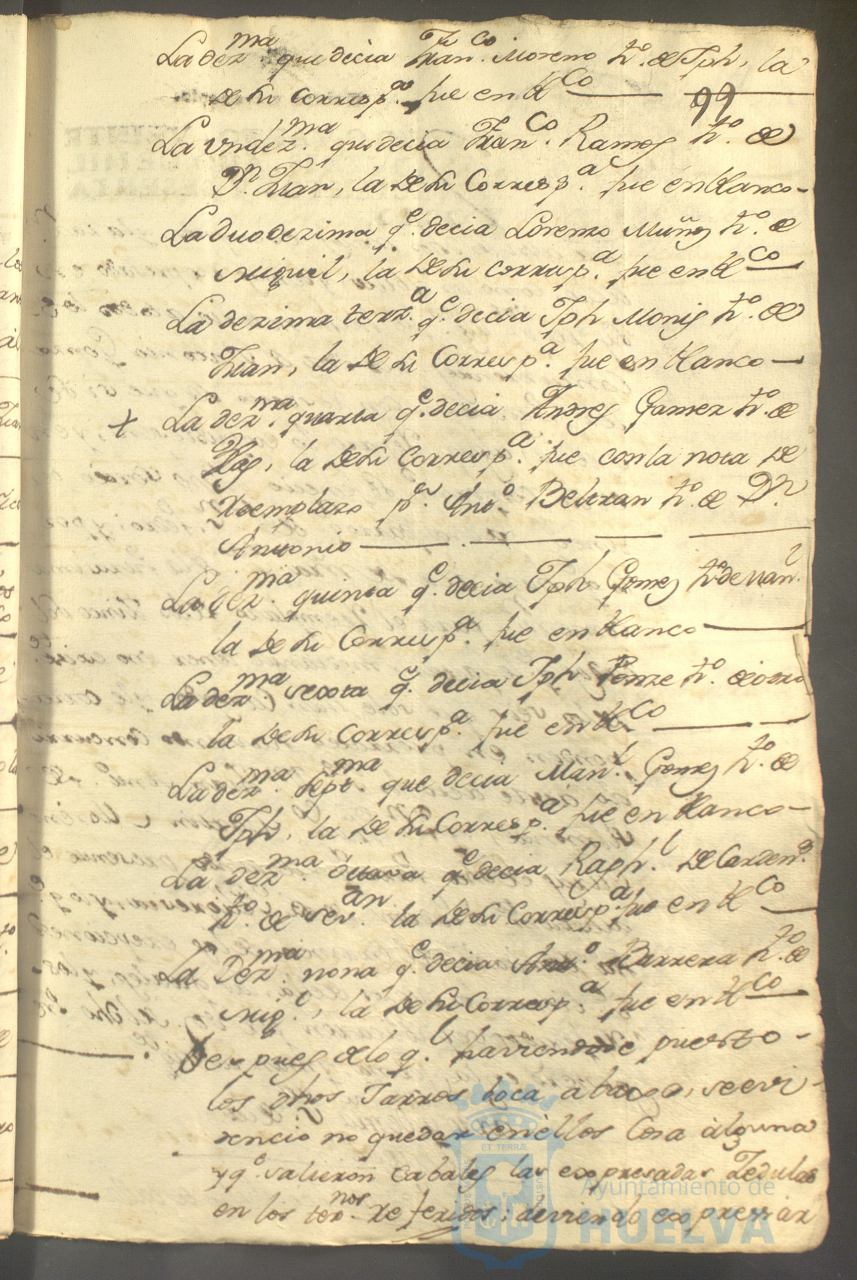 La dez.ma que decia Fran.co Moreno h.o de Jph, la
de su corresp.a fue en bl.co
99
La Undez.ma que decia Fran.co Ramos h.o de
D.n Fran, la de su Corresp.a fue en blanco
La duodezima q.e decia Lorenzo Muñoz h.o de
Miguel, la de su corresp.a fue en bl.co
La dezima terz.a q.e decia Jph Monis h.o de
Fran, la de su Corresp.a fue en blanco
+ La dez.ma quarta q.e decia Andres Gamez h.o de
la de su Corresp.a fue con la nota de
Reemplazo p.r Ant.o Beltran h.o de D.n
Antonio
La dez.ma quinta q.e decia Jph Gomez h.o de Man.l
la de su Corresp.a fue en blanco
La dez.ma sexta q.e decia Jph Ponze h.o de otro
la de su Corresp.a fue en bl.co
La dez.ma sept.ma que decia Man.l Gomez h.o de
Jph, la de su Corresp.a fue en blanco
La dez.ma octava q.e decia Raph.l de Carden.s
h.o de Sev.an la de su Corresp.a fue en bl.co
La Dez.ma nona q.e decia Ant.o Barrera h.o de
Mig.l, la de su Corresp.a fue en bl.co
Despues de lo q.l haviendose puesto
los dhos Jarros boca abaxo, se evi
denció no quedar en ellos cosa alguna
y q.e salieron cabales las expresadas Zedulas
en los term.nos referidos; deviendo expresar
ET TERRÆ
Ayuntamiento de
HUELVA